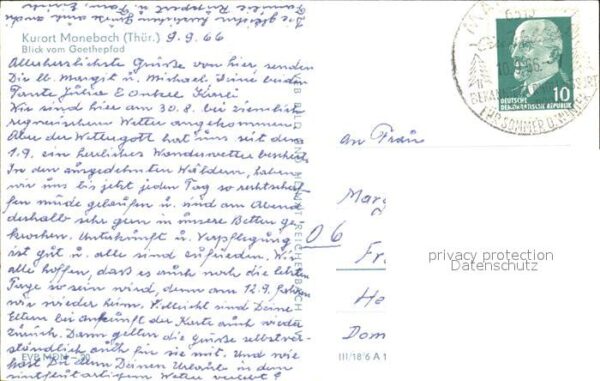 Die gleichen herzlichen Grüße auch
Kurort Manebach (Thür.)
Blick vom Goethepfad
9.9.66
Allerherzlichste Grüße von hier senden
Dir lb. Margit u. Michael Deine beiden
Tante Julia & Onkel Karli
Wir sind hier am 30.8. bei ziemlich
regnerischem Wetter angekommen.
Aber der Wettergott hat uns seit dem
1.9. ein herrliches Wanderwetter beschert.
In den ausgedehnten Wäldern, haben
wir uns bis jetzt jeden Tag so rechtschaf-
fen müde gelaufen u. sind am Abend
deshalb sehr gern in unsere Betten ge-
krochen. Unterkunft u. Verpflegung
ist gut u. alle sind zufrieden. Wir
alle hoffen, daß es auch noch die letzten
Tage so sein wird, denn am 12.9. fahren
wir wieder heim. Vielleicht sind Deine
Eltern bei Ankunft der Karte auch wieder
zurück. Dann gelten die Grüße selbstver-
ständlich auch für sie mit. Und wie
hast Du denn Deinen Urlaub in dem
sintflutartigem Wetter verlebt?
EVP MDN -,20
VEB BILD UND HEIMAT REICHENBACH
III/18/6 A 1
DEUTSCHE
DEMOKRATISCHE REPUBLIK
10
An Frau
Marg
06
Fr
He
Dom
privacy protection
Datenschutz